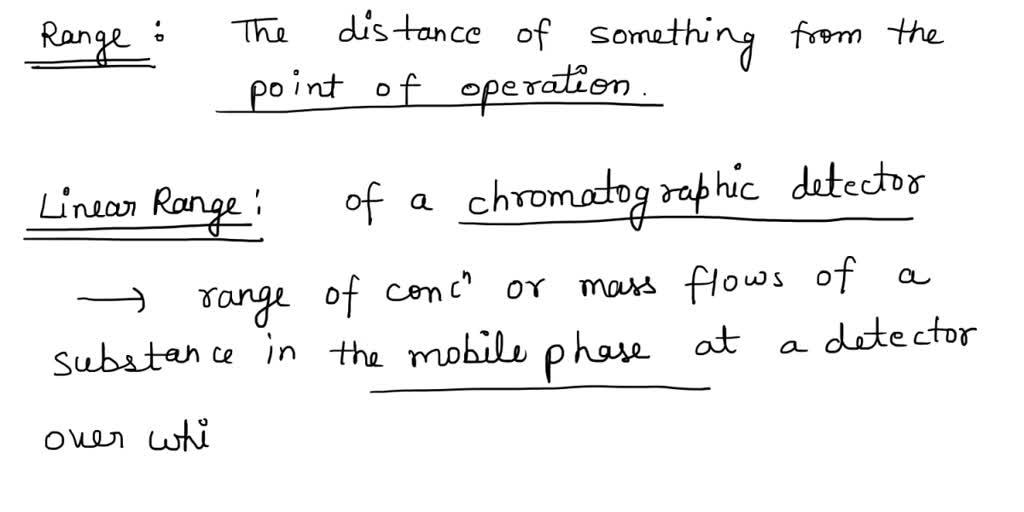 Range : The distance of something from the
point of operation.
Linear Range : of a chromatographic detector
→ range of concⁿ or mass flows of a
substance in the mobile phase at a detector
over whi